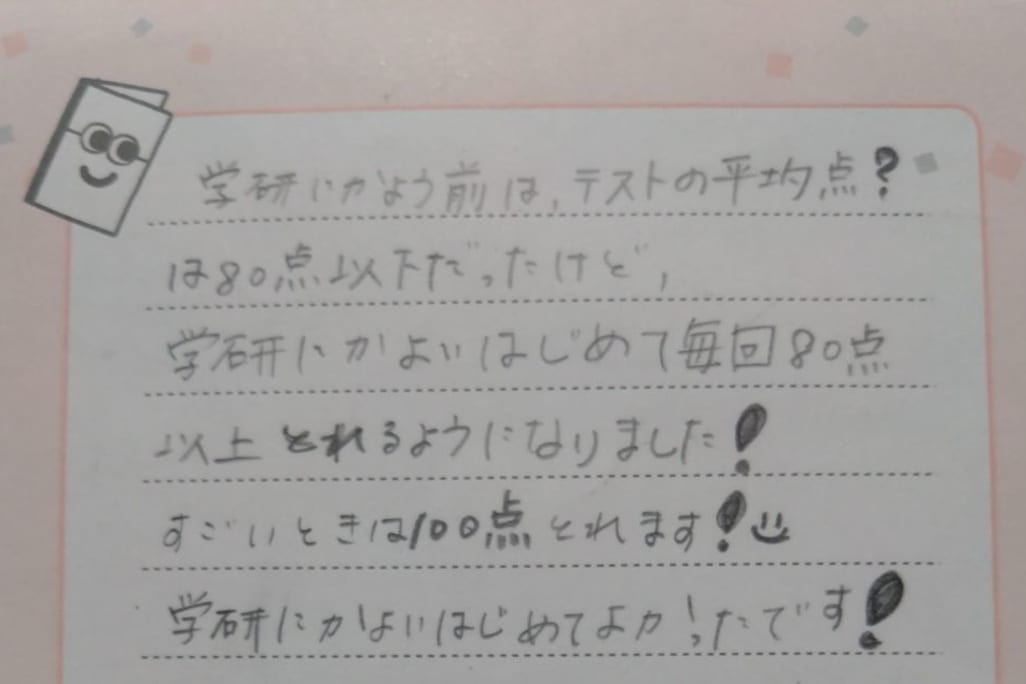 学研にかよう前は、テストの平均点?
は80点以下だったけど,
学研にかよいはじめて毎回80点
以上とれるようになりました!
すごいときは100点とれます!
学研にかよいはじめてよかったです!